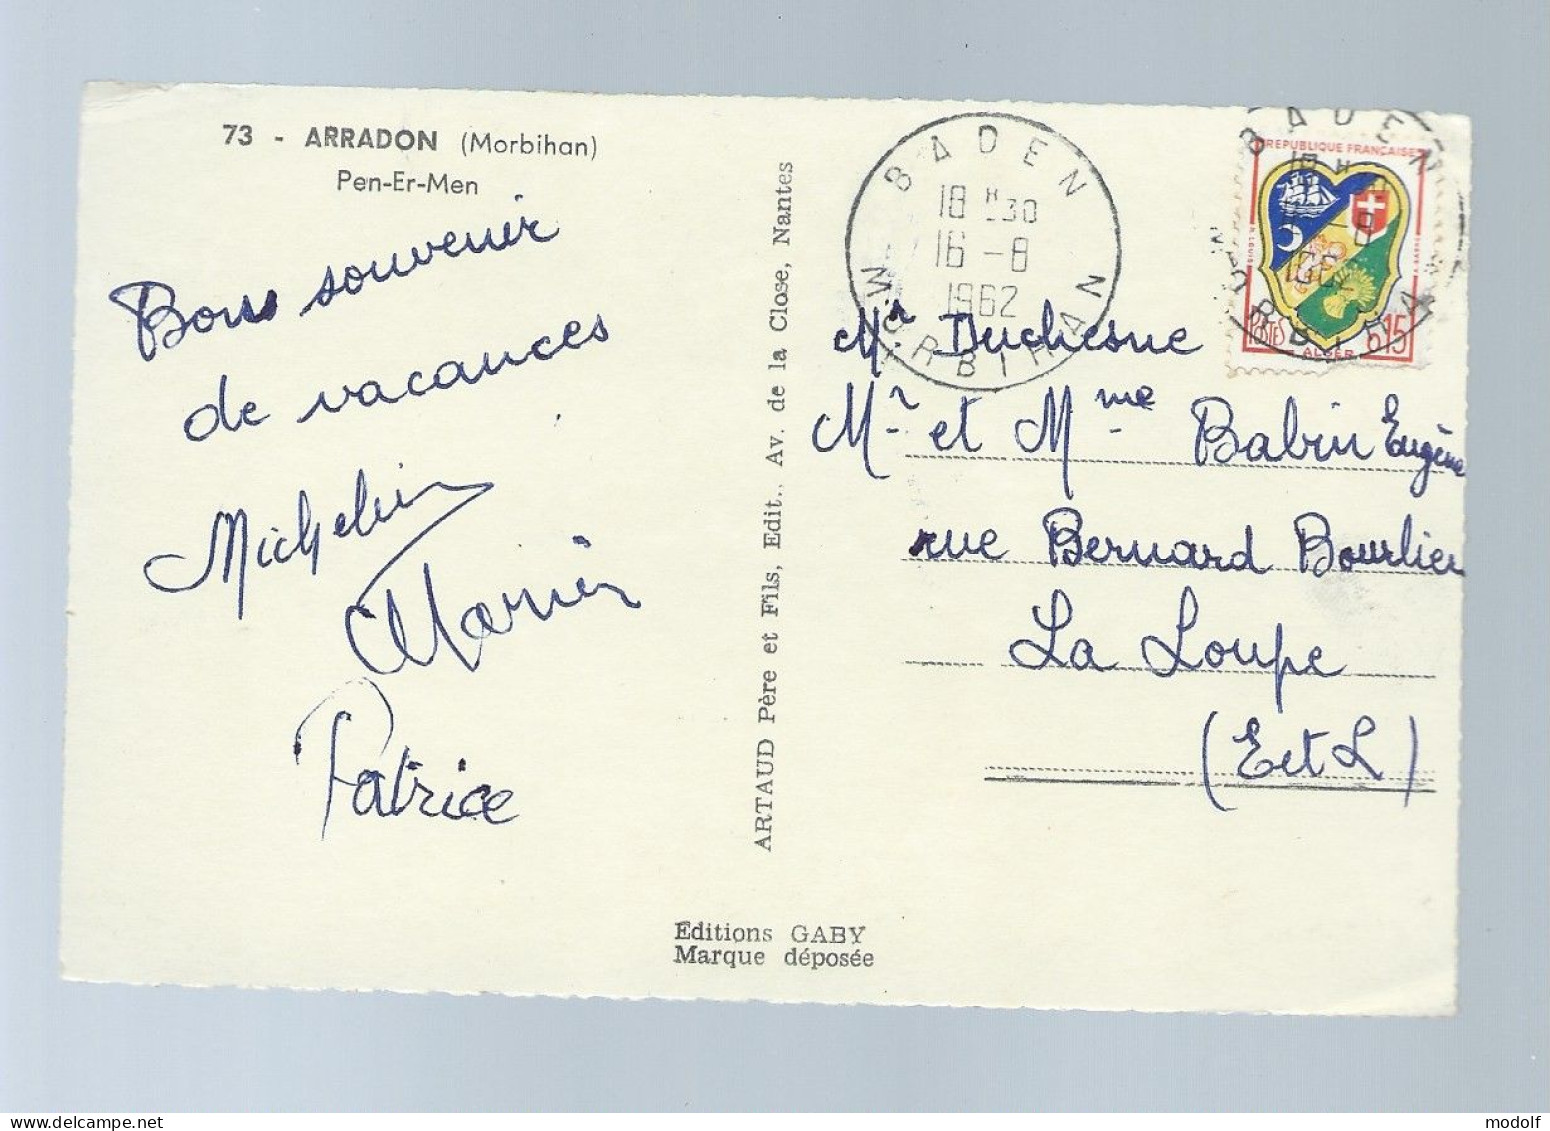 73 - ARRADON (Morbihan)
Pen-Er-Men
Bons souvenir
de vacances
Michelin
Patrice
ARTAUD Père et Fils, Edit., Av. de la Close, Nantes
Editions GABY
Marque déposée
BADEN
18 H 30
16 - 8
1962
MORBIHAN
BADEN
MORBIHAN
REPUBLIQUE FRANÇAISE
POSTES
ALGER
0,15
Mr Duchesne
Mr et Mme Babin Eugène
rue Bernard Bourlier
La Loupe
(E et L)
modolf